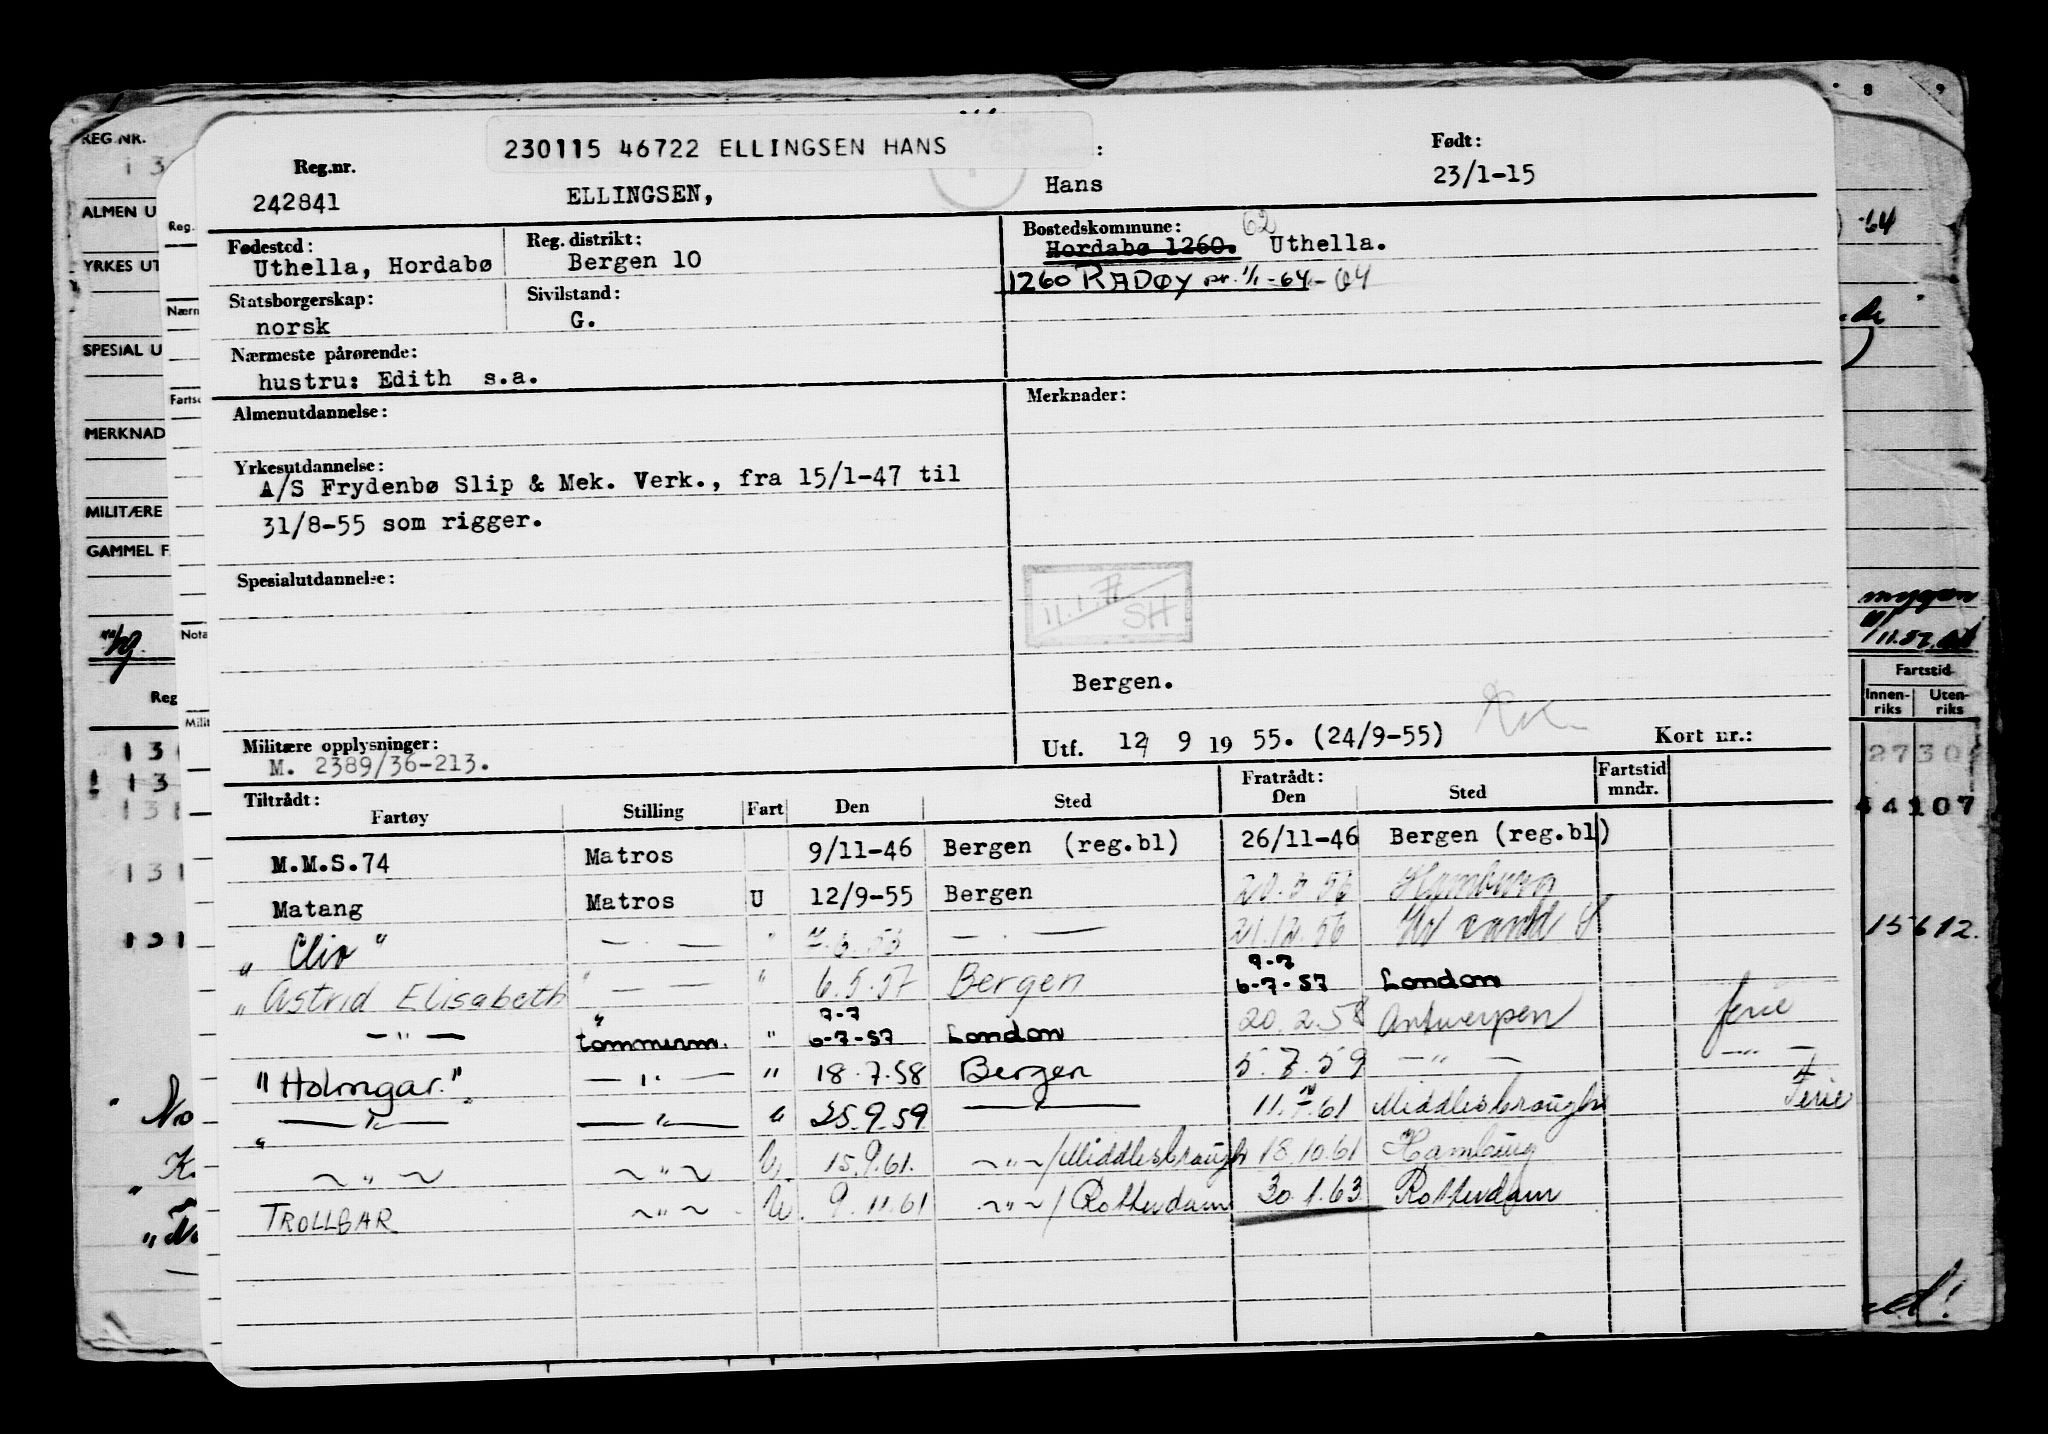 230115 46722 ELLINGSEN HANS
Reg.nr.
242841
ELLINGSEN,
:
Hans
Født:
23/1-15
Fødested:
Uthella, Hordabø
Reg. distrikt:
Bergen 10
Bostedskommune:
62
Hordabø 1260. Uthella.
1260 RADØY pr. 1/1-64 - 64
Statsborgerskap:
norsk
Sivilstand:
G.
Nærmeste pårørende:
hustru: Edith s.a.
Almenutdannelse:
Merknader:
Yrkesutdannelse:
A/S Frydenbø Slip & Mek. Verk., fra 15/1-47 til
31/8-55 som rigger.
Spesialutdannelse:
SH
Bergen.
Militære opplysninger:
M. 2389/36-213.
Utf. 12 9 19 55. (24/9-55)
Kort nr.:
Tiltrådt:
Fartøy
Stilling
Fart
Den
Sted
Fratrådt:
Den
Sted
Fartstid
mndr.
M.M.S.74 Matros 9/11-46 Bergen (reg.bl) 26/11-46 Bergen (reg.bl)
Matang Matros U 12/9-55 Bergen Hamburg
"Clio" — . — " — . — 21.12.56
"Astrid Elisabeth " — — " 6.5.57 Bergen 7-7 6-7-57 London
— " — tømmerm. " 7-7 6-7-57 London 20.2.58 Antwerpen ferie
"Holmgar" — " — " 18.7.58 Bergen 5.7.59 — " — — " —
— " — — " — " 25.9.59 — 61 Middlesbrough Ferie
~ " ~ ~ " ~ U 15.9.61. ~ " ~ / Middlesbrough 18.10.61 Hamburg
TROLLGAR ~ " ~ U. 9.11.61 ~ " ~ / Rotterdam 30.1.63 Rotterdam
REG.NR.
ALMEN U
YRKES UT
SPESIAL U
MERKNAD
MILITÆRE
GAMMEL F
Reg.
Nærm
Nota
Milit
Reg
8 9
64
11.57
Fartstid
Innen-
riks
Uten-
riks